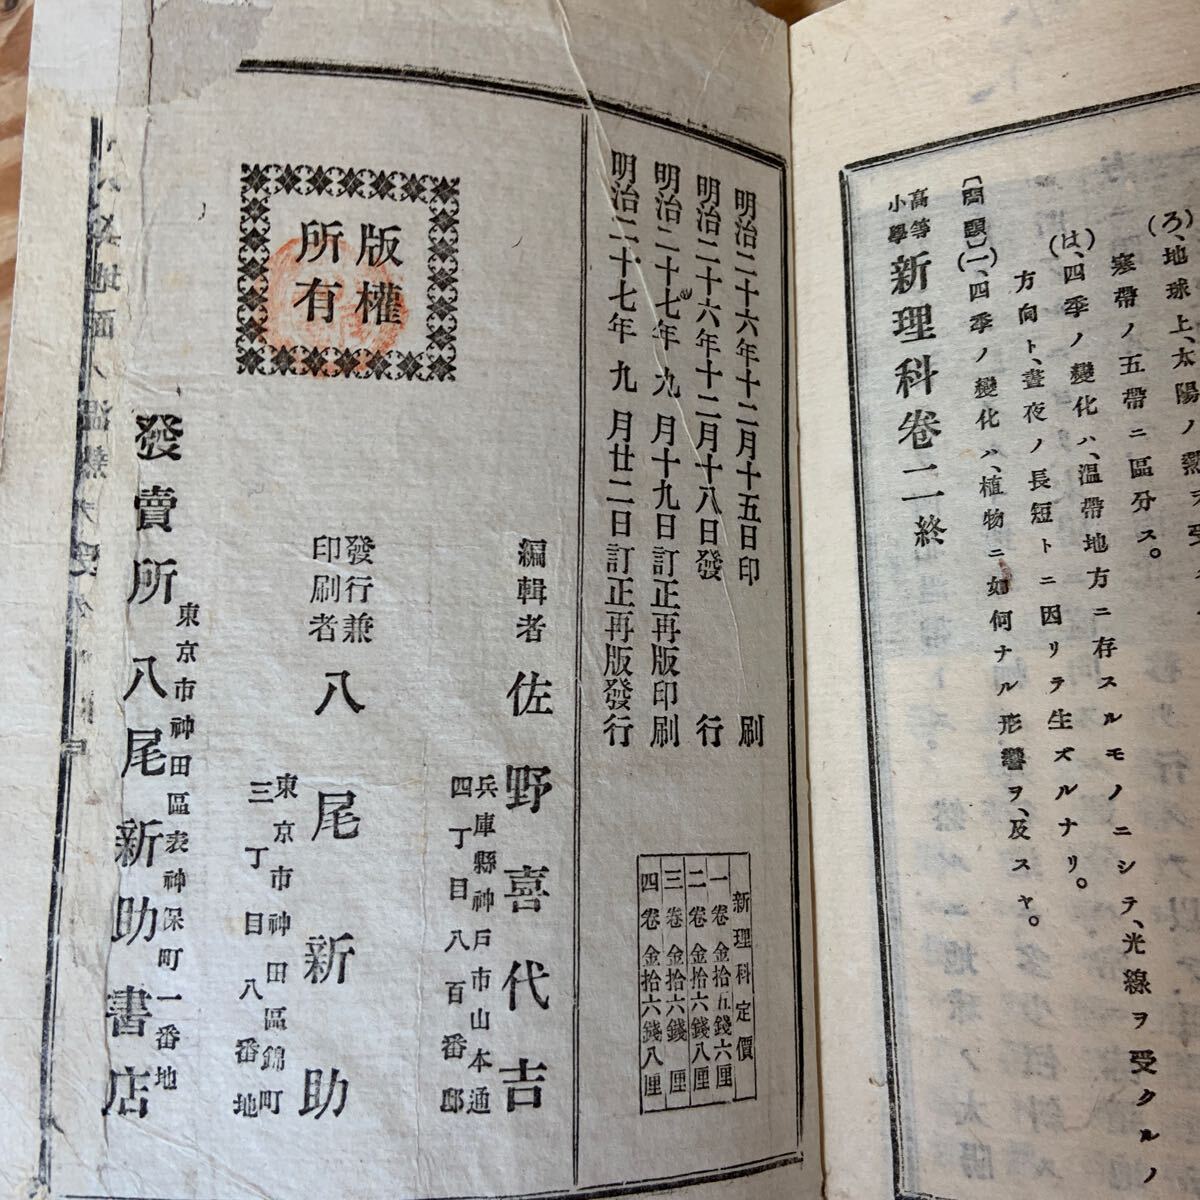 ろ、地球上、太陽ノ熱ヲ受
寒帶ノ五帶ニ區分ス。
(は、四季ノ變化ハ、溫帶地方ニ存スルモノニシテ、光線ヲ受クルノ
方向ト、晝夜ノ長短トニ因リテ生ズルナリ。
〔問題〕(一、四季ノ變化ハ、植物ニ如何ナル形響ヲ、及スヤ。
高等小學新理科卷二終
明治二十六年十二月十五日印刷
明治二十六年十二月十八日發行
明治二十七年九月十九日訂正再版印刷
明治二十七年九月廿二日訂正再版發行
新理科定價
一卷金拾五錢六厘
二卷金拾六錢八厘
三卷金拾六錢厘
四卷金拾六錢八厘
編輯者 佐野喜代吉
兵庫縣神戸市山本通
四丁目八百番邸
發行兼印刷者 八尾新助
東京市神田區錦町
三丁目八番地
版權所有
東京市神田區表神保町一番地
發賣所 八尾新助書店